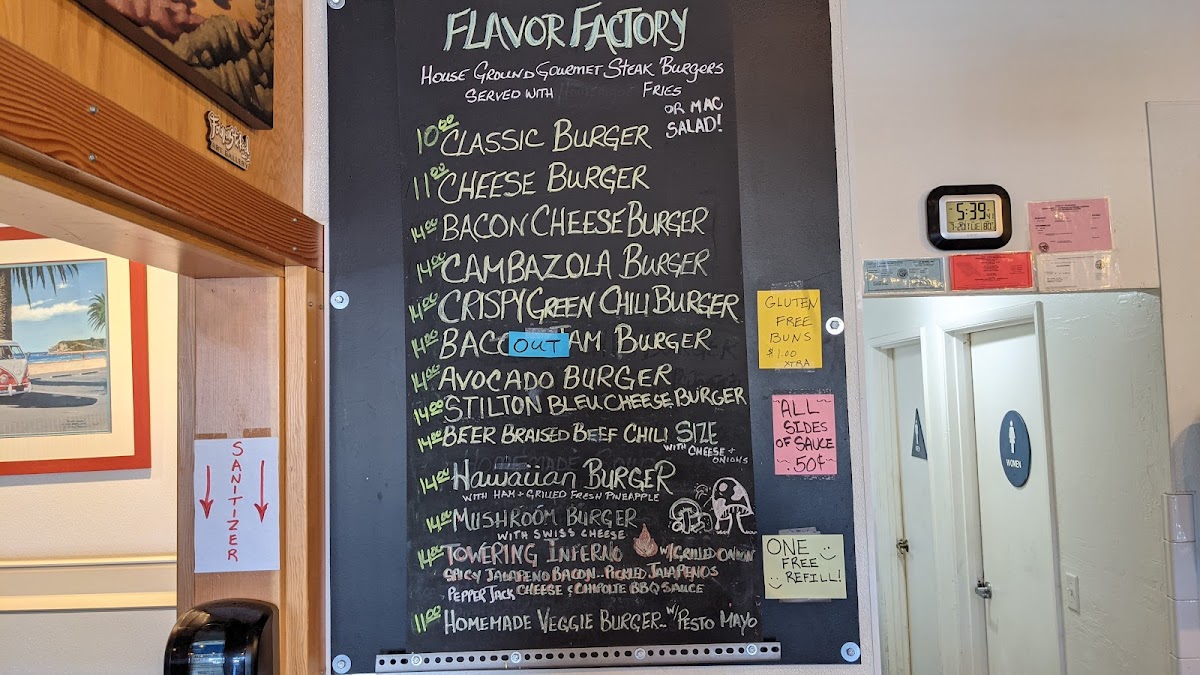 FLAVOR FACTORY
HOUSE GROUND GOURMET STEAK BURGERS
SERVED WITH FRIES
OR MAC
SALAD!
10.00 CLASSIC BURGER
11.00 CHEESE BURGER
14.00 BACON CHEESE BURGER
14.00 CAMBAZOLA BURGER
14.00 CRISPY GREEN CHILI BURGER
14.00 JAM BURGER
OUT
14.00 AVOCADO BURGER
14.00 STILTON BLEU CHEESE BURGER
14.00 BEER BRAISED BEEF CHILI SIZE
WITH CHEESE +
ONIONS
14.00 Hawaiian BURGER
WITH HAM + GRILLED FRESH PINEAPPLE
14.00 MUSHROOM BURGER
WITH SWISS CHEESE
14.00 TOWERING INFERNO W/ GRILLED ONION
SPICY JALAPENO BACON.. PICKLED JALAPENOS
PEPPER JACK CHEESE & CHIPOLTE BBQ SAUCE
11.00 HOMEMADE VEGGIE BURGER.. W/ PESTO MAYO
GLUTEN
FREE
BUNS
$1.00
XTRA
~ALL~
SIDES
OF SAUCE
.50¢
ONE
FREE
REFILL!
SANITIZER
5:39
WOMEN